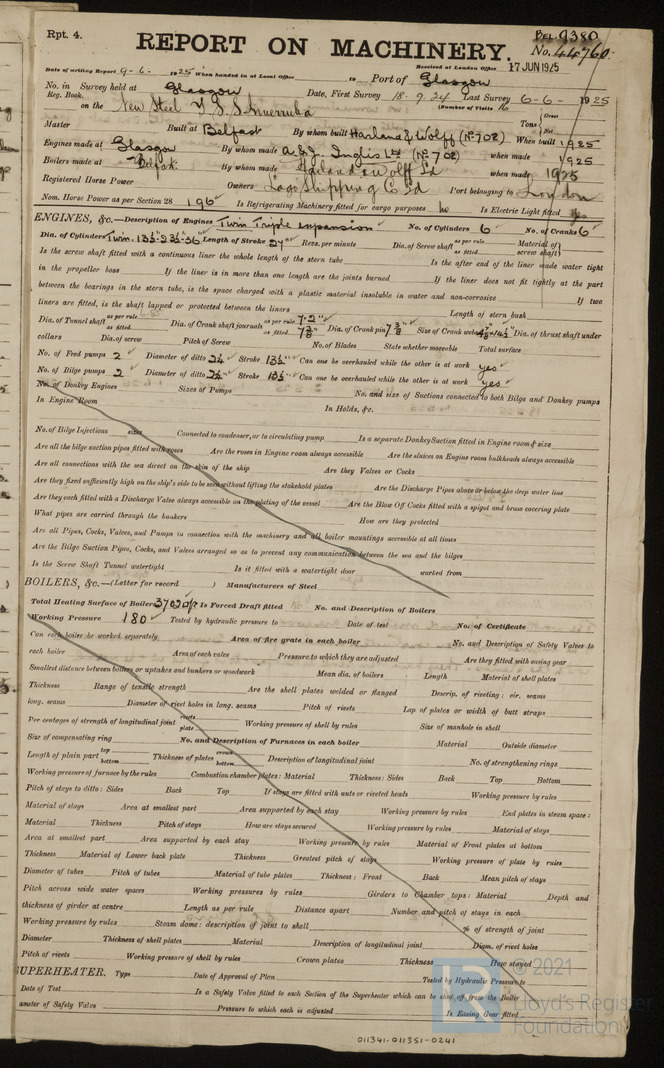 Rpt. 4.
Bel. 9380
REPORT ON MACHINERY.
No. 44760
Date of writing Report 9-6- 1925 When handed in at Local Office 19 Port of Glasgow
Received at London Office 17 JUN 1925
No. in Survey held at Glasgow Date, First Survey 18.9.24 Last Survey 6-6- 1925
Reg. Book. (Number of Visits 16
on the New Steel T.S.S. Inverruba
Tons { Gross Net
Master Built at Belfast By whom built Harland & Wolff (No 702) When built 1925
Engines made at Glasgow By whom made A & J Inglis Ltd (No 702) when made 1925
Boilers made at Belfast By whom made Harland & Wolff Ld when made 1925
Registered Horse Power Owners Lago Shipping Co Ld Port belonging to London
Nom. Horse Power as per Section 28 196 Is Refrigerating Machinery fitted for cargo purposes no Is Electric Light fitted yes
ENGINES, &c.—Description of Engines Twin Triple expansion No. of Cylinders 6 No. of Cranks 6
Dia. of Cylinders Twin. 13½-23½-36" Length of Stroke 27" Revs. per minute Dia. of Screw shaft as per rule as fitted Material of screw shaft
Is the screw shaft fitted with a continuous liner the whole length of the stern tube Is the after end of the liner made water tight
in the propeller boss If the liner is in more than one length are the joints burned If the liner does not fit tightly at the part
between the bearings in the stern tube, is the space charged with a plastic material insoluble in water and non-corrosive If two
liners are fitted, is the shaft lapped or protected between the liners Length of stern bush
Dia. of Tunnel shaft as per rule as fitted Dia. of Crank shaft journals as per rule 7.2" as fitted 7⅜" Dia. of Crank pin 7⅜" Size of Crank webs Dia. of thrust shaft under
collars Dia. of screw Pitch of Screw No. of Blades State whether moveable Total surface
No. of Feed pumps 2 Diameter of ditto 2¼ Stroke 13½" Can one be overhauled while the other is at work yes
No. of Bilge pumps 2 Diameter of ditto 2¼" Stroke 13½" Can one be overhauled while the other is at work yes
No. of Donkey Engines Sizes of Pumps No. and size of Suctions connected to both Bilge and Donkey pumps
In Engine Room In Holds, &c.
No. of Bilge Injections sizes Connected to condenser, or to circulating pump Is a separate Donkey Suction fitted in Engine room & size
Are all the bilge suction pipes fitted with roses Are the roses in Engine room always accessible Are the sluices on Engine room bulkheads always accessible
Are all connections with the sea direct on the skin of the ship Are they Valves or Cocks
Are they fixed sufficiently high on the ship's side to be seen without lifting the stokehold plates Are the Discharge Pipes above or below the deep water line
Are they each fitted with a Discharge Valve always accessible on the plating of the vessel Are the Blow Off Cocks fitted with a spigot and brass covering plate
What pipes are carried through the bunkers How are they protected
Are all Pipes, Cocks, Valves, and Pumps in connection with the machinery and all boiler mountings accessible at all times
Are the Bilge Suction Pipes, Cocks, and Valves arranged so as to prevent any communication between the sea and the bilges
Is the Screw Shaft Tunnel watertight Is it fitted with a watertight door worked from
BOILERS, &c.—(Letter for record ) Manufacturers of Steel
Total Heating Surface of Boilers 3702 Is Forced Draft fitted No. and Description of Boilers
Working Pressure 180 Tested by hydraulic pressure to Date of test No. of Certificate
Can each boiler be worked separately Area of fire grate in each boiler No. and Description of Safety Valves to
each boiler Area of each valve Pressure to which they are adjusted Are they fitted with easing gear
Smallest distance between boilers or uptakes and bunkers or woodwork Mean dia. of boilers Length Material of shell plates
Thickness Range of tensile strength Are the shell plates welded or flanged Descrip. of riveting: cir. seams
long. seams Diameter of rivet holes in long. seams Pitch of rivets Lap of plates or width of butt straps
Per centages of strength of longitudinal joint rivets plate Working pressure of shell by rules Size of manhole in shell
Size of compensating ring No. and Description of Furnaces in each boiler Material Outside diameter
Length of plain part top bottom Thickness of plates crown bottom Description of longitudinal joint No. of strengthening rings
Working pressure of furnace by the rules Combustion chamber plates: Material Thickness: Sides Back Top Bottom
Pitch of stays to ditto: Sides Back Top If stays are fitted with nuts or riveted heads Working pressure by rules
Material of stays Area at smallest part Area supported by each stay Working pressure by rules End plates in steam space:
Material Thickness Pitch of stays How are stays secured Working pressure by rules Material of stays
Area at smallest part Area supported by each stay Working pressure by rules Material of Front plates at bottom
Thickness Material of Lower back plate Thickness Greatest pitch of stays Working pressure of plate by rules
Diameter of tubes Pitch of tubes Material of tube plates Thickness: Front Back Mean pitch of stays
Pitch across wide water spaces Working pressures by rules Girders to Chamber tops: Material Depth and
thickness of girder at centre Length as per rule Distance apart Number and pitch of stays in each
Working pressure by rules Steam dome: description of joint to shell % of strength of joint
Diameter Thickness of shell plates Material Description of longitudinal joint Diam. of rivet holes
Pitch of rivets Working pressure of shell by rules Crown plates Thickness How stayed
SUPERHEATER. Type Date of Approval of Plan Tested by Hydraulic Pressure to
Date of Test Is a Safety Valve fitted to each Section of the Superheater which can be shut off from the Boiler
ameter of Safety Valve Pressure to which each is adjusted Is Easing Gear fitted
© 2021
Lloyd's Register
Foundation
011341-011351-0241